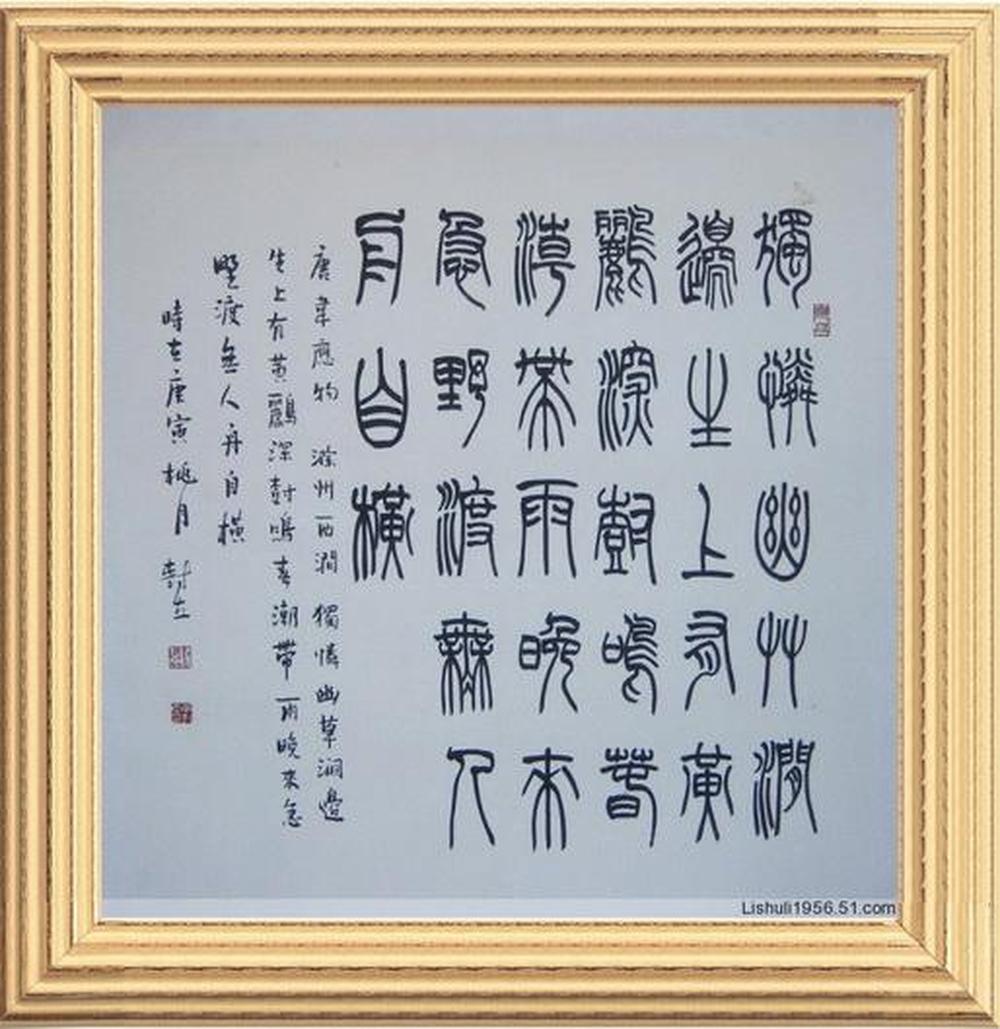 獨憐幽艸澗
邊生上有黃
鸝深尌鳴春
潮帶雨晚來
急野渡無人
舟自橫
唐韋應物 滁州西澗 獨憐幽草澗邊
生上有黃鸝深尌鳴春潮帶雨晚來急
野渡無人舟自橫
時在庚寅桃月 尌立
Lishuli1956.51.com